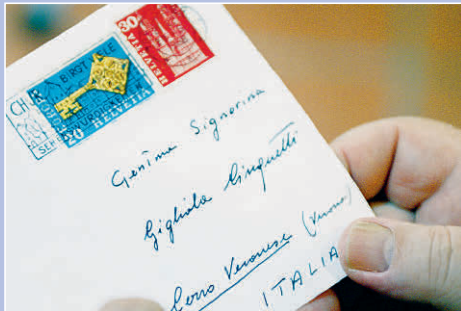 30
HELVETIA
EUROPA
20 HELVETIA
Gen.ma Signorina
Gigliola Cinquetti
Cerro Veronese (Verona)
ITALIA